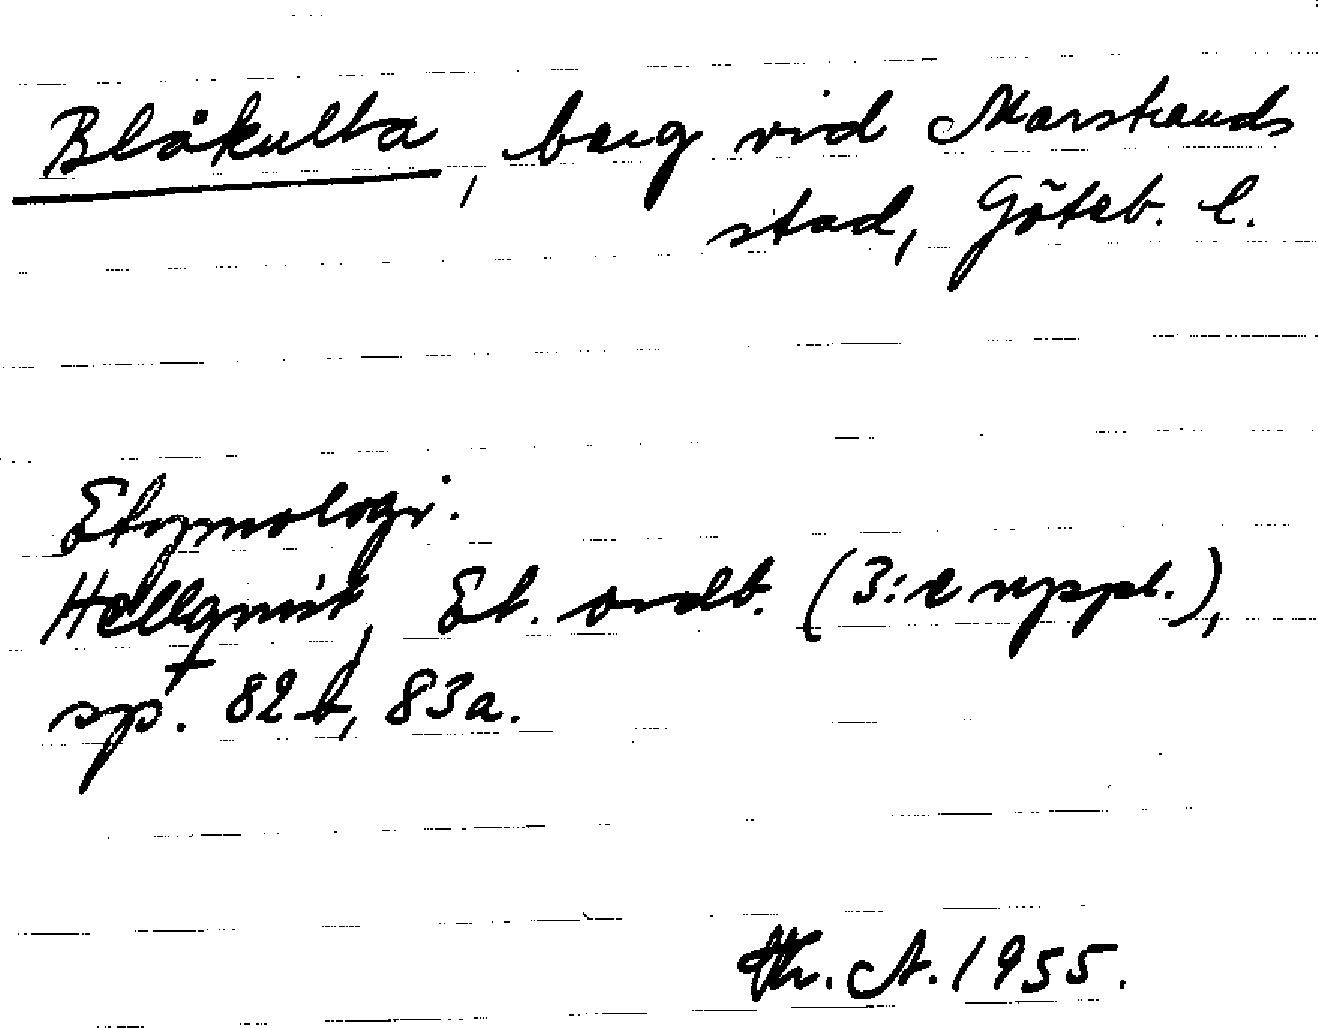 Blåkulla, berg vid Marstrands
stad, Göteb. l.
Etymologi.
Hellquist, Et. ordb. (3:e uppl.),
sp. 82 b, 83a.
Th. A. 1955.